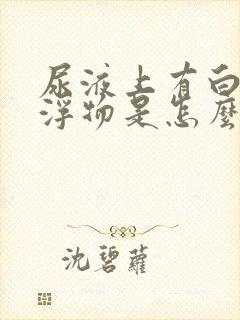 尿液上有白
浮物是怎麼
沈碧蘿